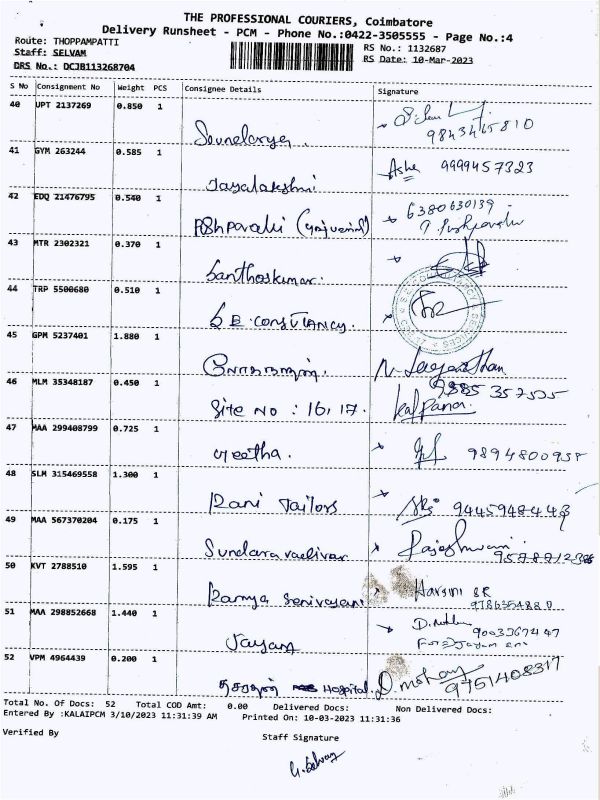 THE PROFESSIONAL COURIERS, Coimbatore
Delivery Runsheet - PCM - Phone No.:0422-3505555 - Page No.:4
Route: THOPPAMPATTI RS No.: 1132687
Staff: SELVAM RS Date: 10-Mar-2023
DRS No.: DCJB113268704
S No Consignment No Weight PCS Consignee Details Signature
40 UPT 2137269 0.850 1
Soundarya. 9843465810
41 GYM 263244 0.585 1
Jayalakshmi Asha 9999457323
42 EDQ 21476795 0.540 1 6380630139
43 MTR 2302321 0.370 1
Santhoskumar.
44 TRP 5500680 0.510 1
S E CONSULTANCY.
45 GPM 5237401 1.880 1
46 MLM 35348187 0.450 1
Site No : 16, 17. Kalpana.
47 MAA 299408799 0.725 1
Geetha. 9894800938
48 SLM 315469558 1.300 1
Rani Tailors
49 MAA 567370204 0.175 1
Sundaravadivar Rajeshwari
50 KVT 2788510 1.595 1
Ramya Srinivasan Harsini SR
51 MAA 298852668 1.440 1
Jayam 9003367447
52 VPM 4964439 0.200 1
Hospital. D. mohan 9751408317
Total No. Of Docs: 52 Total COD Amt: 0.00 Delivered Docs: Non Delivered Docs:
Entered By :KALAIPCM 3/10/2023 11:31:39 AM Printed On: 10-03-2023 11:31:36
Verified By Staff Signature